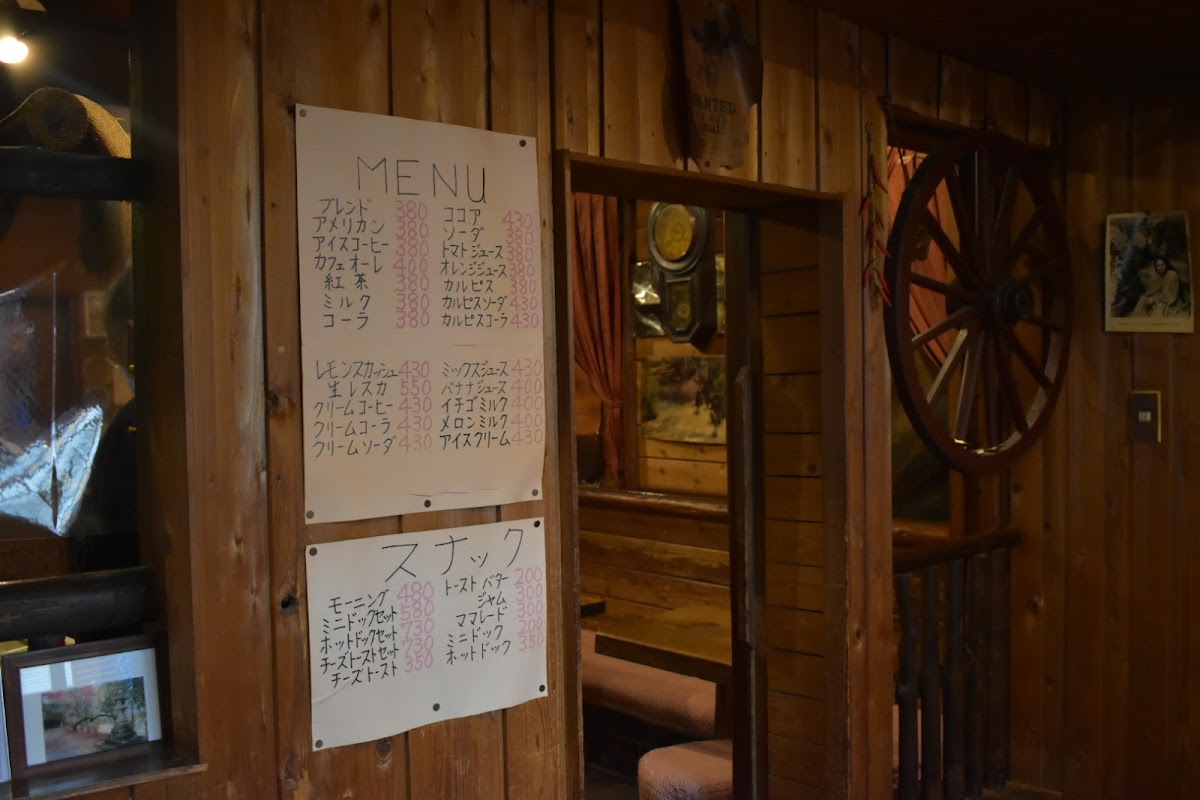 MENU
ブレンド 380
アメリカン 380
アイスコーヒー 380
カフェオーレ 400
紅茶 380
ミルク 380
コーラ 380
ココア 430
ソーダ 380
トマトジュース 380
オレンジジュース 380
カルピス 380
カルピスソーダ 430
カルピスコーラ 430
レモンスカッシュ 430
生レスカ 550
クリームコーヒー 430
クリームコーラ 430
クリームソーダ 430
ミックスジュース 430
バナナジュース 400
イチゴミルク 400
メロンミルク 400
アイスクリーム 430
スナック
モーニング 480
ミニドックセット 580
ホットドックセット 730
チーズトーストセット 730
チーズトースト 350
トースト バター 200
ジャム 300
ママレード 300
ミニドック 200
ホットドック 350
WANTED